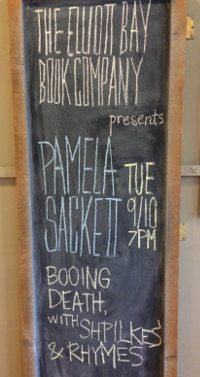 THE ELLIOTT BAY
BOOK COMPANY
presents
PAMELA
SACKETT
TUE
9/10
7PM
BOOING
DEATH,
WITH SHPILKES
& RHYMES